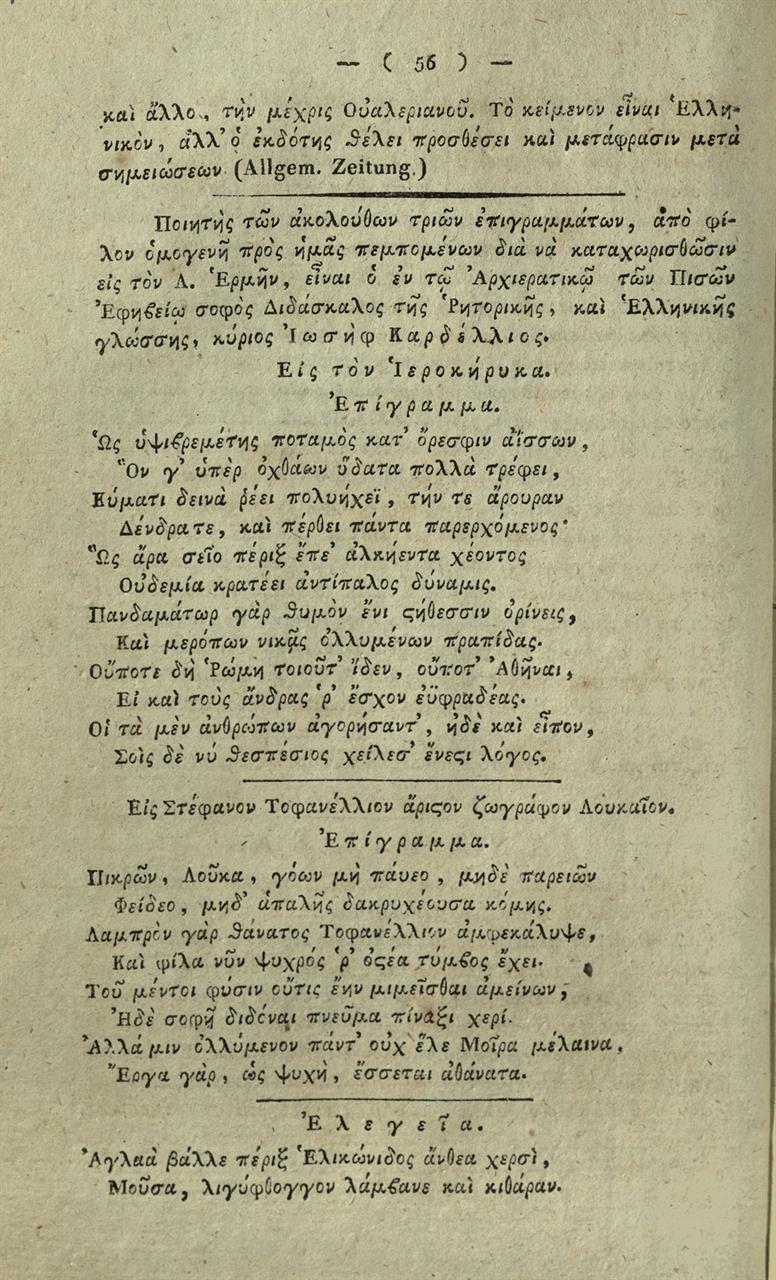 — ( 56 ) —
καὶ ἄλλο, τὴν μέχρις Οὐαλεριανοῦ. Τὸ κείμενον εἶναι Ἑλλη-
νικὸν, ἀλλ' ὁ ἐκδότης θέλει προσθέσει καὶ μετάφρασιν μετὰ
σημειώσεων (Allgem. Zeitung.)
Ποιητὴς τῶν ἀκολούθων τριῶν ἐπιγραμμάτων, ἀπὸ φί-
λον ὁμογενῆ πρὸς ἡμᾶς πεμπομένων διὰ νὰ καταχωρισθῶσιν
εἰς τὸν Λ. Ἑρμῆν, εἶναι ὁ ἐν τῷ Ἀρχιερατικῷ τῶν Πισῶν
Ἐφηβείῳ σοφὸς Διδάσκαλος τῆς Ῥητορικῆς, καὶ Ἑλληνικῆς
γλώσσης, κύριος Ἰωσὴφ Καρδέλλιος.
Εἰς τὸν Ἱεροκήρυκα.
Ἐπίγραμμα.
Ὡς ὑψιβρεμέτης ποταμὸς κατ' ὄρεσφιν ἀΐσσων,
Ὃν γ' ὑπὲρ ὀχθάων ὕδατα πολλὰ τρέφει,
Κύματι δεινὰ ῥέει πολυήχεϊ, τήν τε ἄρουραν
Δένδρατε, καὶ πέρθει πάντα παρερχόμενος·
Ὣς ἄρα σεῖο πέριξ ἔπε' ἀλκήεντα χέοντος
Οὐδεμία κρατέει ἀντίπαλος δύναμις.
Πανδαμάτωρ γὰρ θυμὸν ἔνι ϛήθεσσιν ὀρίνεις,
Καὶ μερόπων νικᾷς ὀλλυμένων πραπίδας.
Οὔποτε δὴ Ῥώμη τοιοῦτ' ἴδεν, οὔποτ' Ἀθῆναι,
Εἰ καὶ τοὺς ἄνδρας ῥ' ἔσχον ἐϋφραδέας.
Οἱ τὰ μὲν ἀνθρώπων ἀγορήσαντ', ἠδὲ καὶ εἶπον,
Σοῖς δὲ νύ θεσπέσιος χείλεσ' ἔνεϛι λόγος.
Εἰς Στέφανον Τοφανέλλιον ἄριϛον ζωγράφον Λουκαῖον.
Ἐπίγραμμα.
Πικρῶν, Λοῦκα, γόων μὴ παύεο, μηδὲ παρειῶν
Φείδεο, μηδ' ἁπαλῆς δακρυχέουσα κόμης.
Λαμπρὸν γὰρ θάνατος Τοφανέλλιον ἀμφεκάλυψε,
Καὶ φίλα νῦν ψυχρός ῥ' ὀϛέα τύμβος ἔχει.
Τοῦ μέντοι φύσιν οὔτις ἔην μιμεῖσθαι ἀμείνων,
Ἠδὲ σοφῇ διδόναι πνεῦμα πίναξι χερί.
Ἀλλά μιν ὀλλύμενον πάντ' οὐχ ἕλε Μοῖρα μέλαινα,
Ἔργα γὰρ, ὡς ψυχὴ, ἔσσεται ἀθάνατα.
Ἐλεγεῖα.
Ἀγλαὰ βάλλε πέριξ Ἑλικώνιδος ἄνθεα χερσὶ,
Μοῦσα, λιγύφθογγον λάμβανε καὶ κιθάραν.